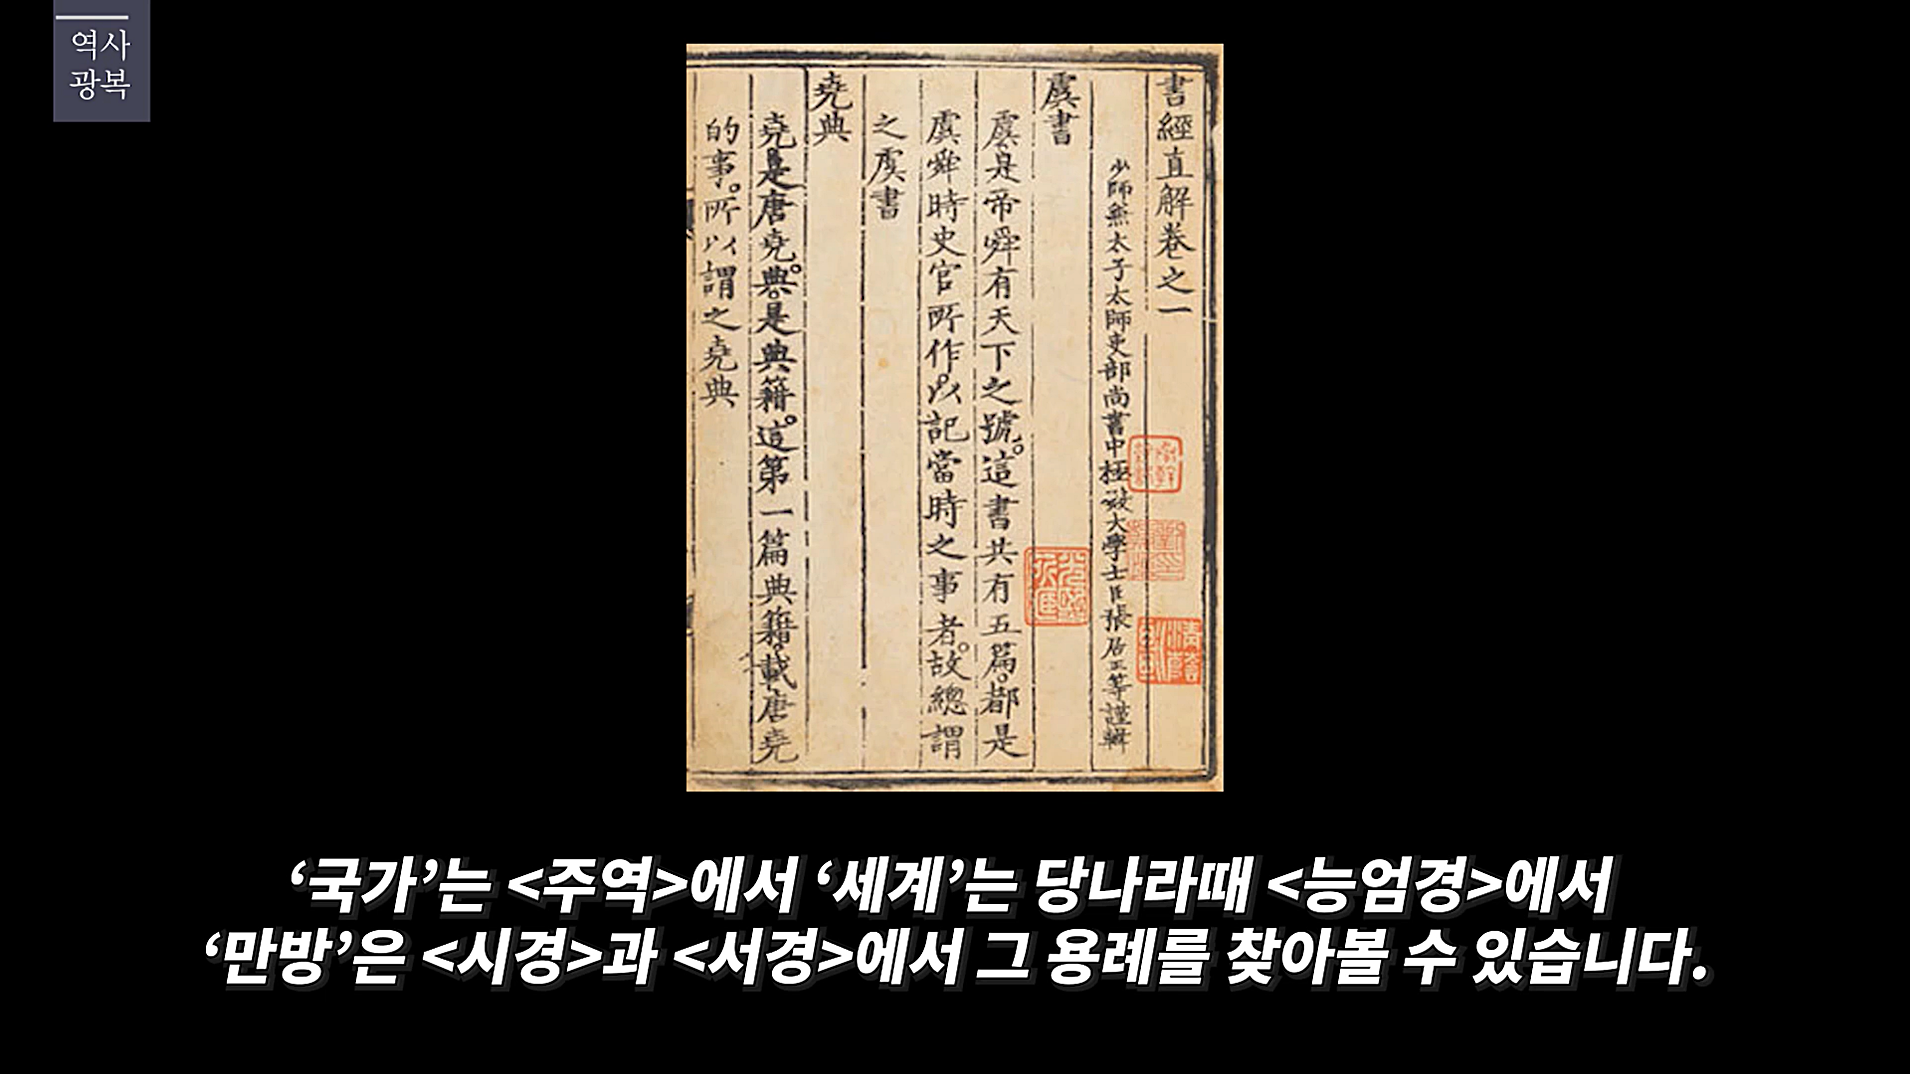 역사
광복
書經直解卷之一
少師兼太子太師吏部尚書中極殿大學士臣張居正等謹輯
虞書
虞是帝舜有天下之號。這書共有五篇。都是
虞舜時史官所作。以記當時之事者。故總謂
之虞書
堯典
堯是唐堯。典是典籍。這第一篇典籍。載唐堯
的事。所以謂之堯典
‘국가’는 <주역>에서 ‘세계’는 당나라때 <능엄경>에서
‘만방’은 <시경>과 <서경>에서 그 용례를 찾아볼 수 있습니다.